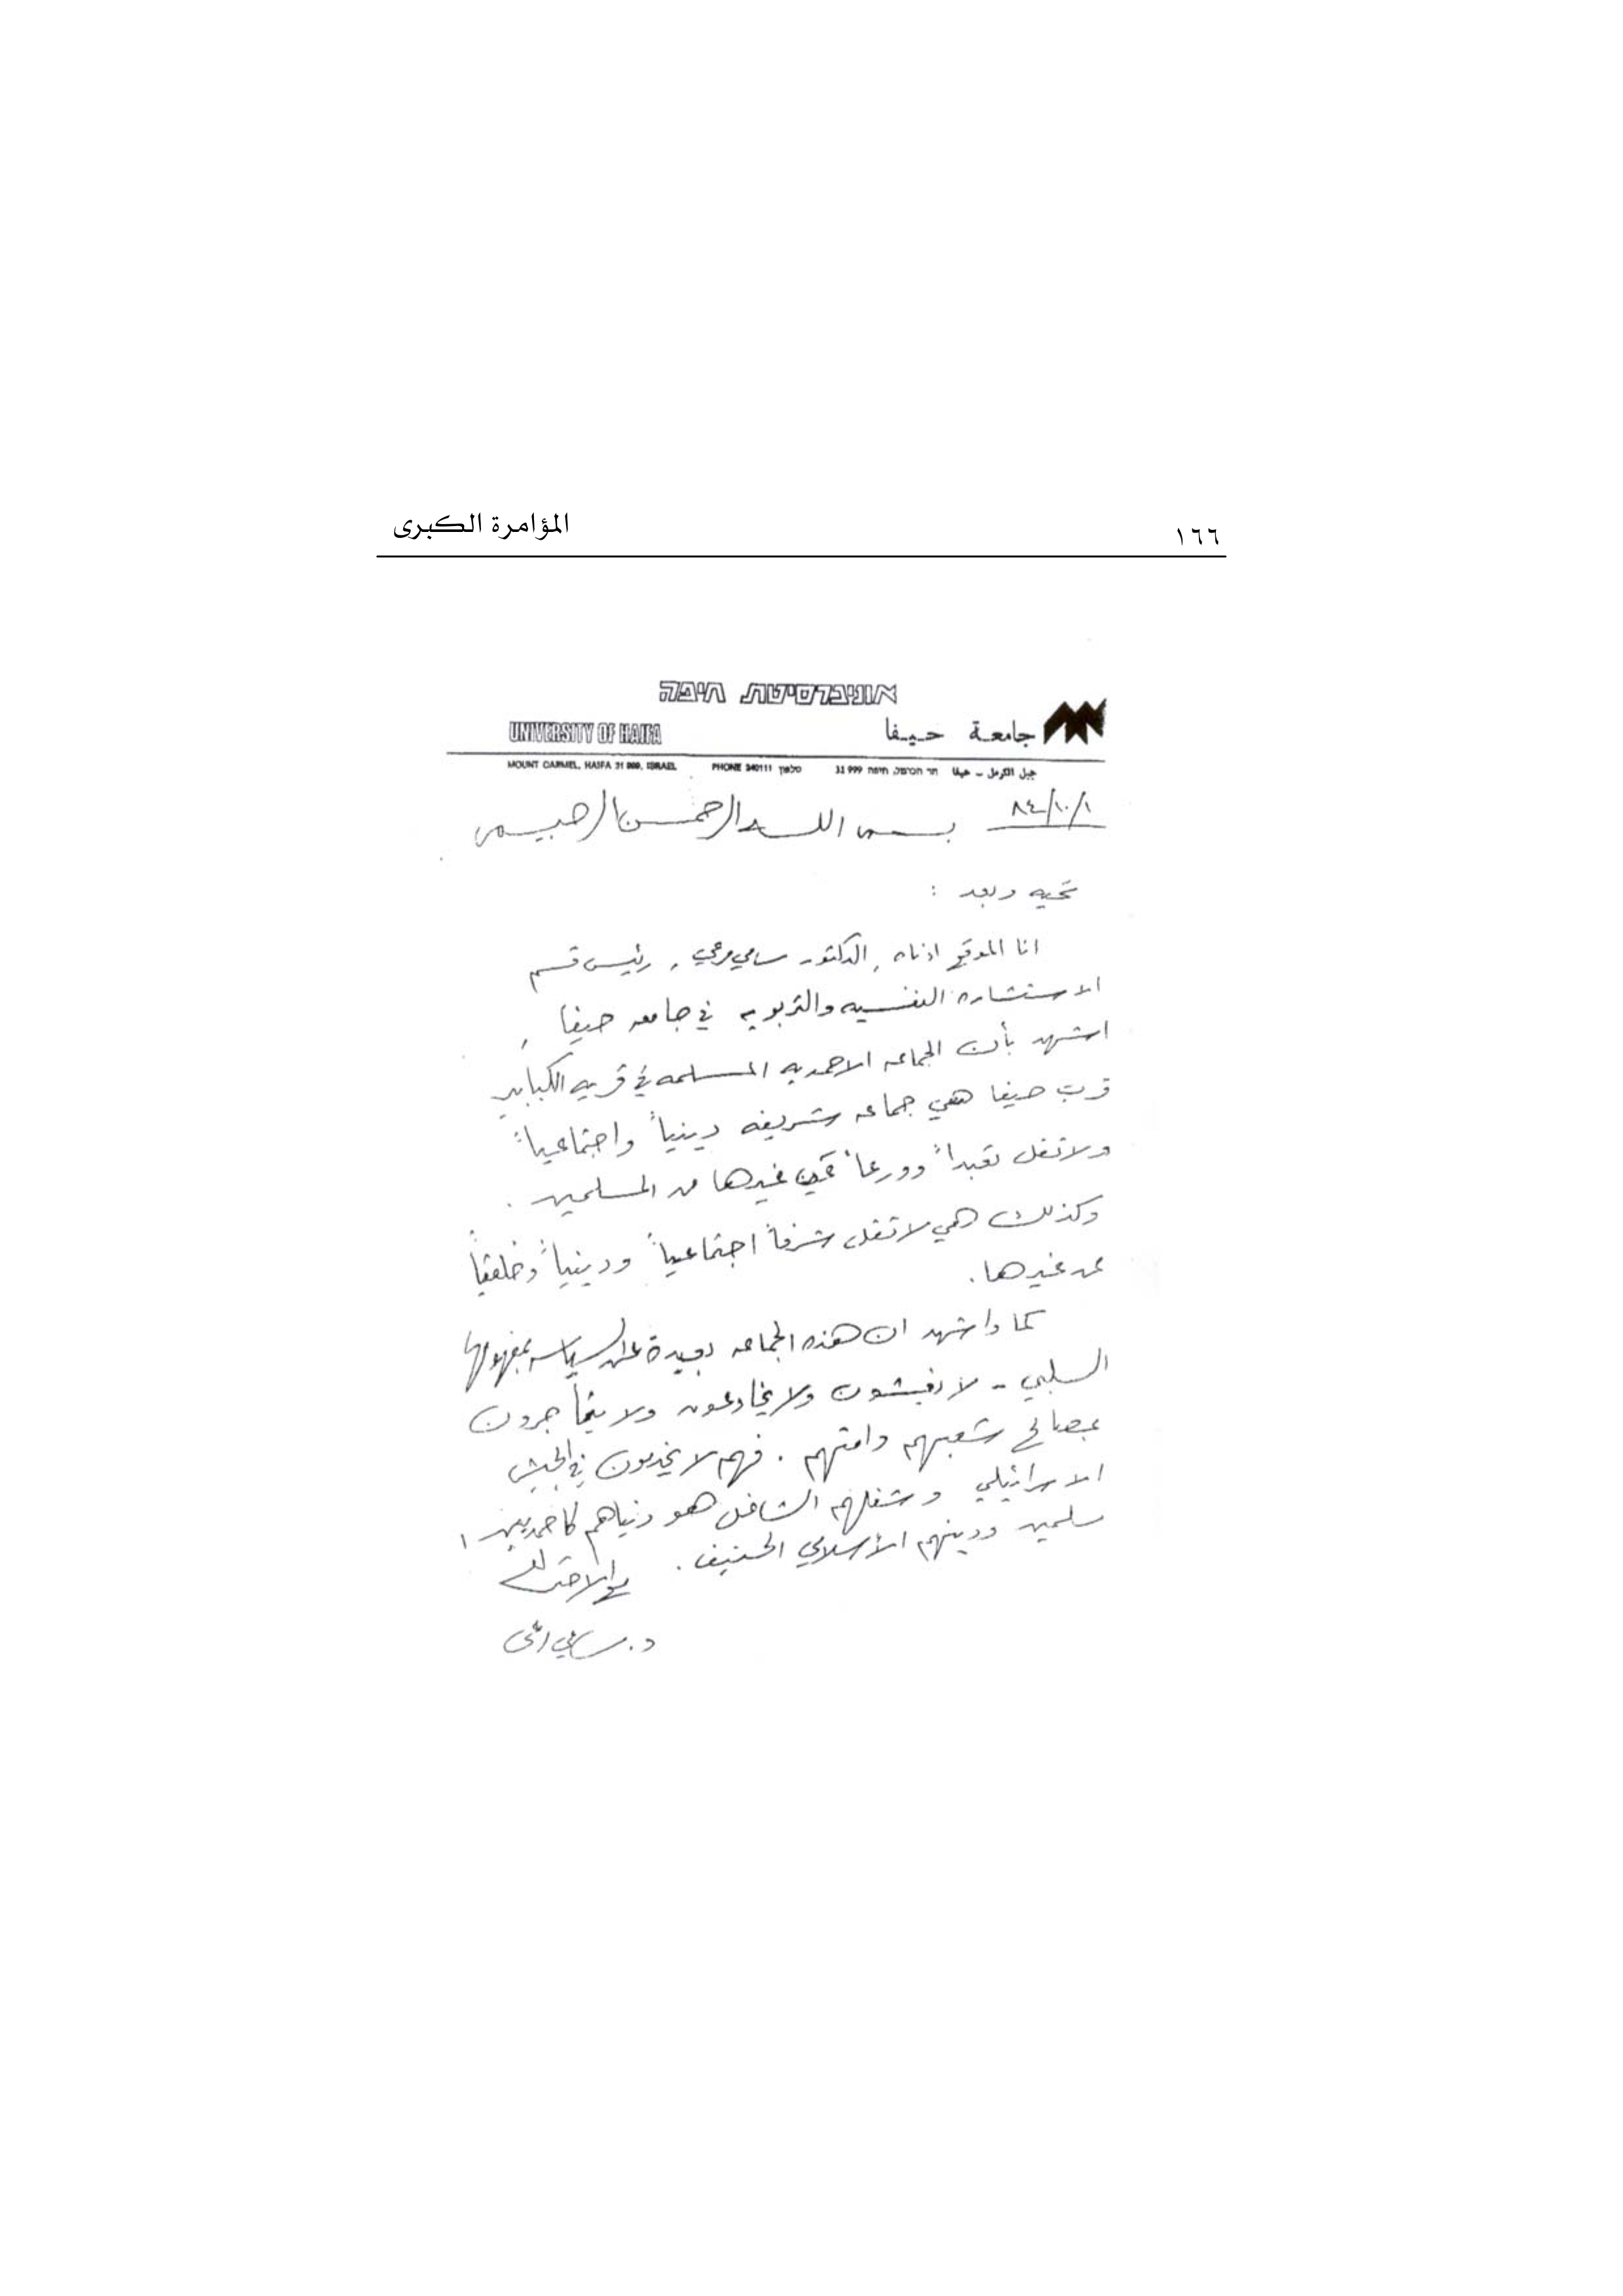 ١٦٦ المؤامرة الكبرى
אוניברסיטת חיפה
جامعة حيفا UNIVERSITY OF HAIFA
جبل الكرمل - حيفا הר הכרמל, חיפה 31 999 טלפון PHONE 240111 MOUNT CARMEL, HAIFA 31 999, ISRAEL
٨٤/١٠/١ بسم الله الرحمن الرحيم
تحيه وبعد :
انا الموقع ادناه , الدكتور سامي مرعي , رئيس قسم
الاستشاره النفسيه والتربويه في جامعه حيفا ,
اشهد بأن الجماعه الاحمديه المسلمه في قريه الكبابير
قرب حيفا هي جماعه شريفه دينياً واجتماعياً
ولا تقل تعبداً وورعاً عن غيرها من المسلمين .
وكذلك هي لا تقل شرفاً اجتماعياً ودينياً وخلقياً
عن غيرها .
كما واشهد ان هذه الجماعه بعيدة عن السياسه بمفهومها
السلبي - لا يغشون ولا يخادعون ولا يتاجرون
بمصالح شعبهم وامتهم . فهم لا يخدمون في الجيش
الاسرائيلي وشغلهم الشاغل هو دنياهم كاحمديين
مسلمين ودينهم الأسلامي الحنيف .
مع الاحترام
د. سامي مرعي